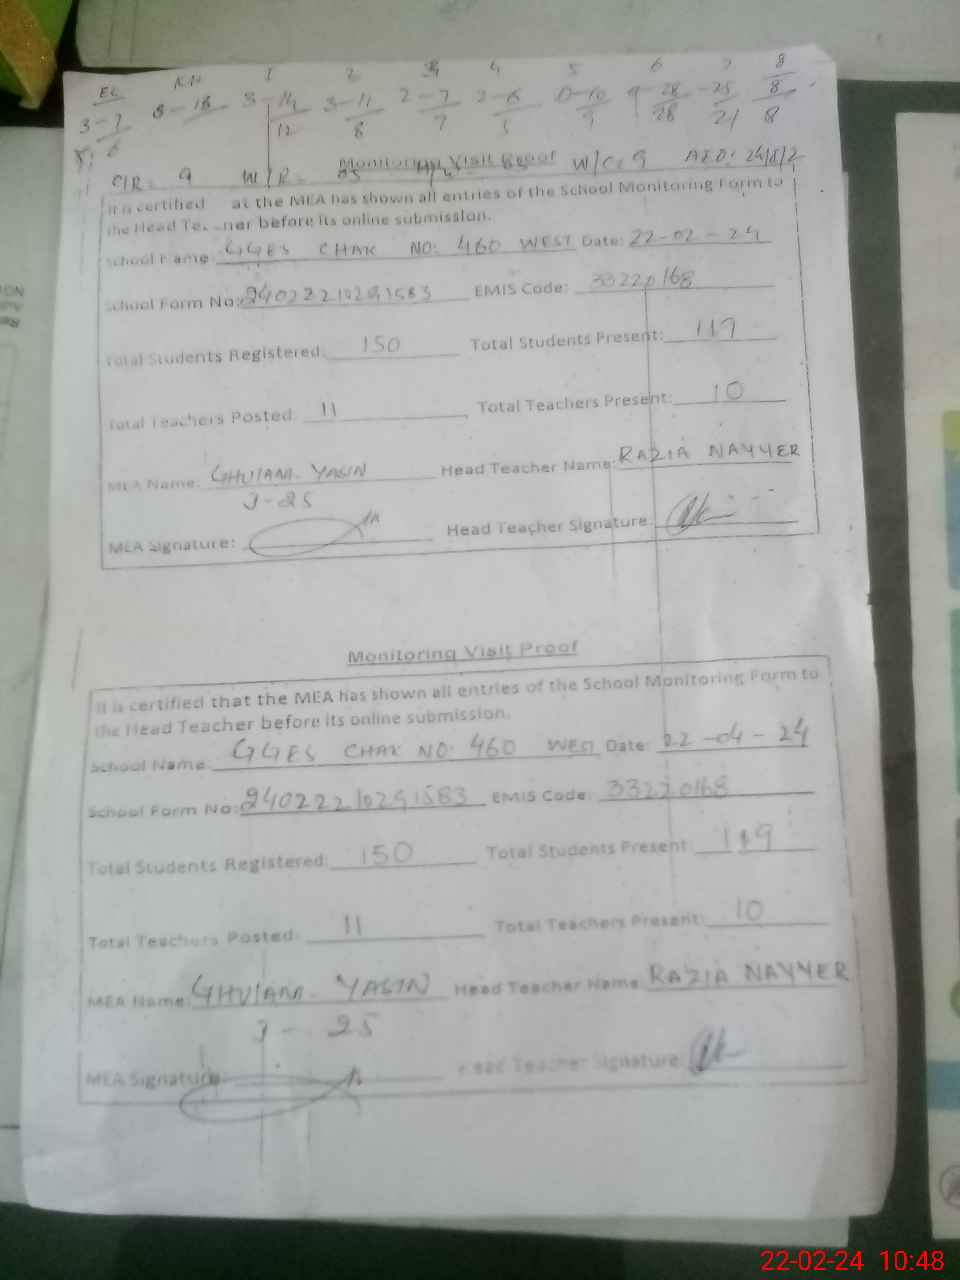 EC K.N 1 2 3 4 5 6 7 8
3-7 8-18 3-14 3-11 2-7 9-28 8
6 12 8 7 9 28 21 8
Monitoring Visit Proof
C/R = 9 W/R = W/C = 9
It is certified at the MEA has shown all entries of the School Monitoring Form to
the Head Te ner before its online submission.
School Name: GGES CHAK NO: 460 WEST Date: 22-02-24
School Form No: 24022210291583 EMIS Code: 33220168
Total Students Registered: 150 Total Students Present: 119
Total Teachers Posted: 11 Total Teachers Present: 10
MEA Name: GHULAM YASIN Head Teacher Name: RAZIA NAYYER
J-25
MEA Signature: Head Teacher Signature:
Monitoring Visit Proof
It is certified that the MEA has shown all entries of the School Monitoring Form to
the Head Teacher before its online submission.
School Name: GGES CHAK NO: 460 WEST Date: 22-04-24
School Form No: 24022210291583 EMIS Code: 33220168
Total Students Registered: 150 Total Students Present: 119
Total Teachers Posted: 11 Total Teachers Present: 10
MEA Name: GHULAM YASIN Head Teacher Name: RAZIA NAYYER
J-25
MEA Signature: Head Teacher Signature:
22-02-24 10:48